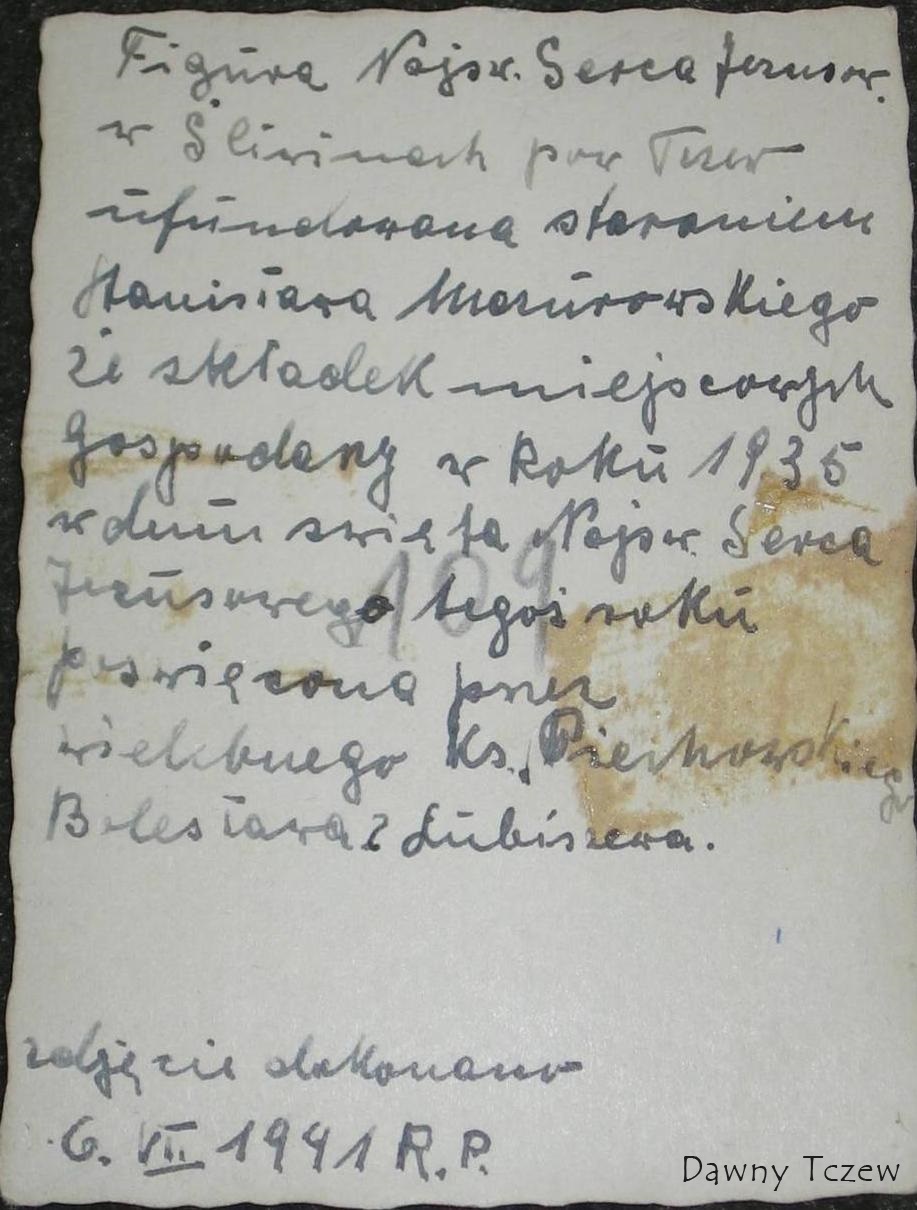 Figura Najsw. Serca Jezusow.
w Śliwinach pow Tczew
ufundowana staraniem
Stanisława Mazurowskiego
ze składek miejscowych
Gospodarzy w Roku 1935
w dniu święta Najsw. Serca
Jezusowego tegoż roku
poswięcona przez
wielebnego Ks. Piechowskiego
Bolesława z Lubiszewa.
109
zdjęcie dokonano
6. VII 1941 R.P.
Dawny Tczew